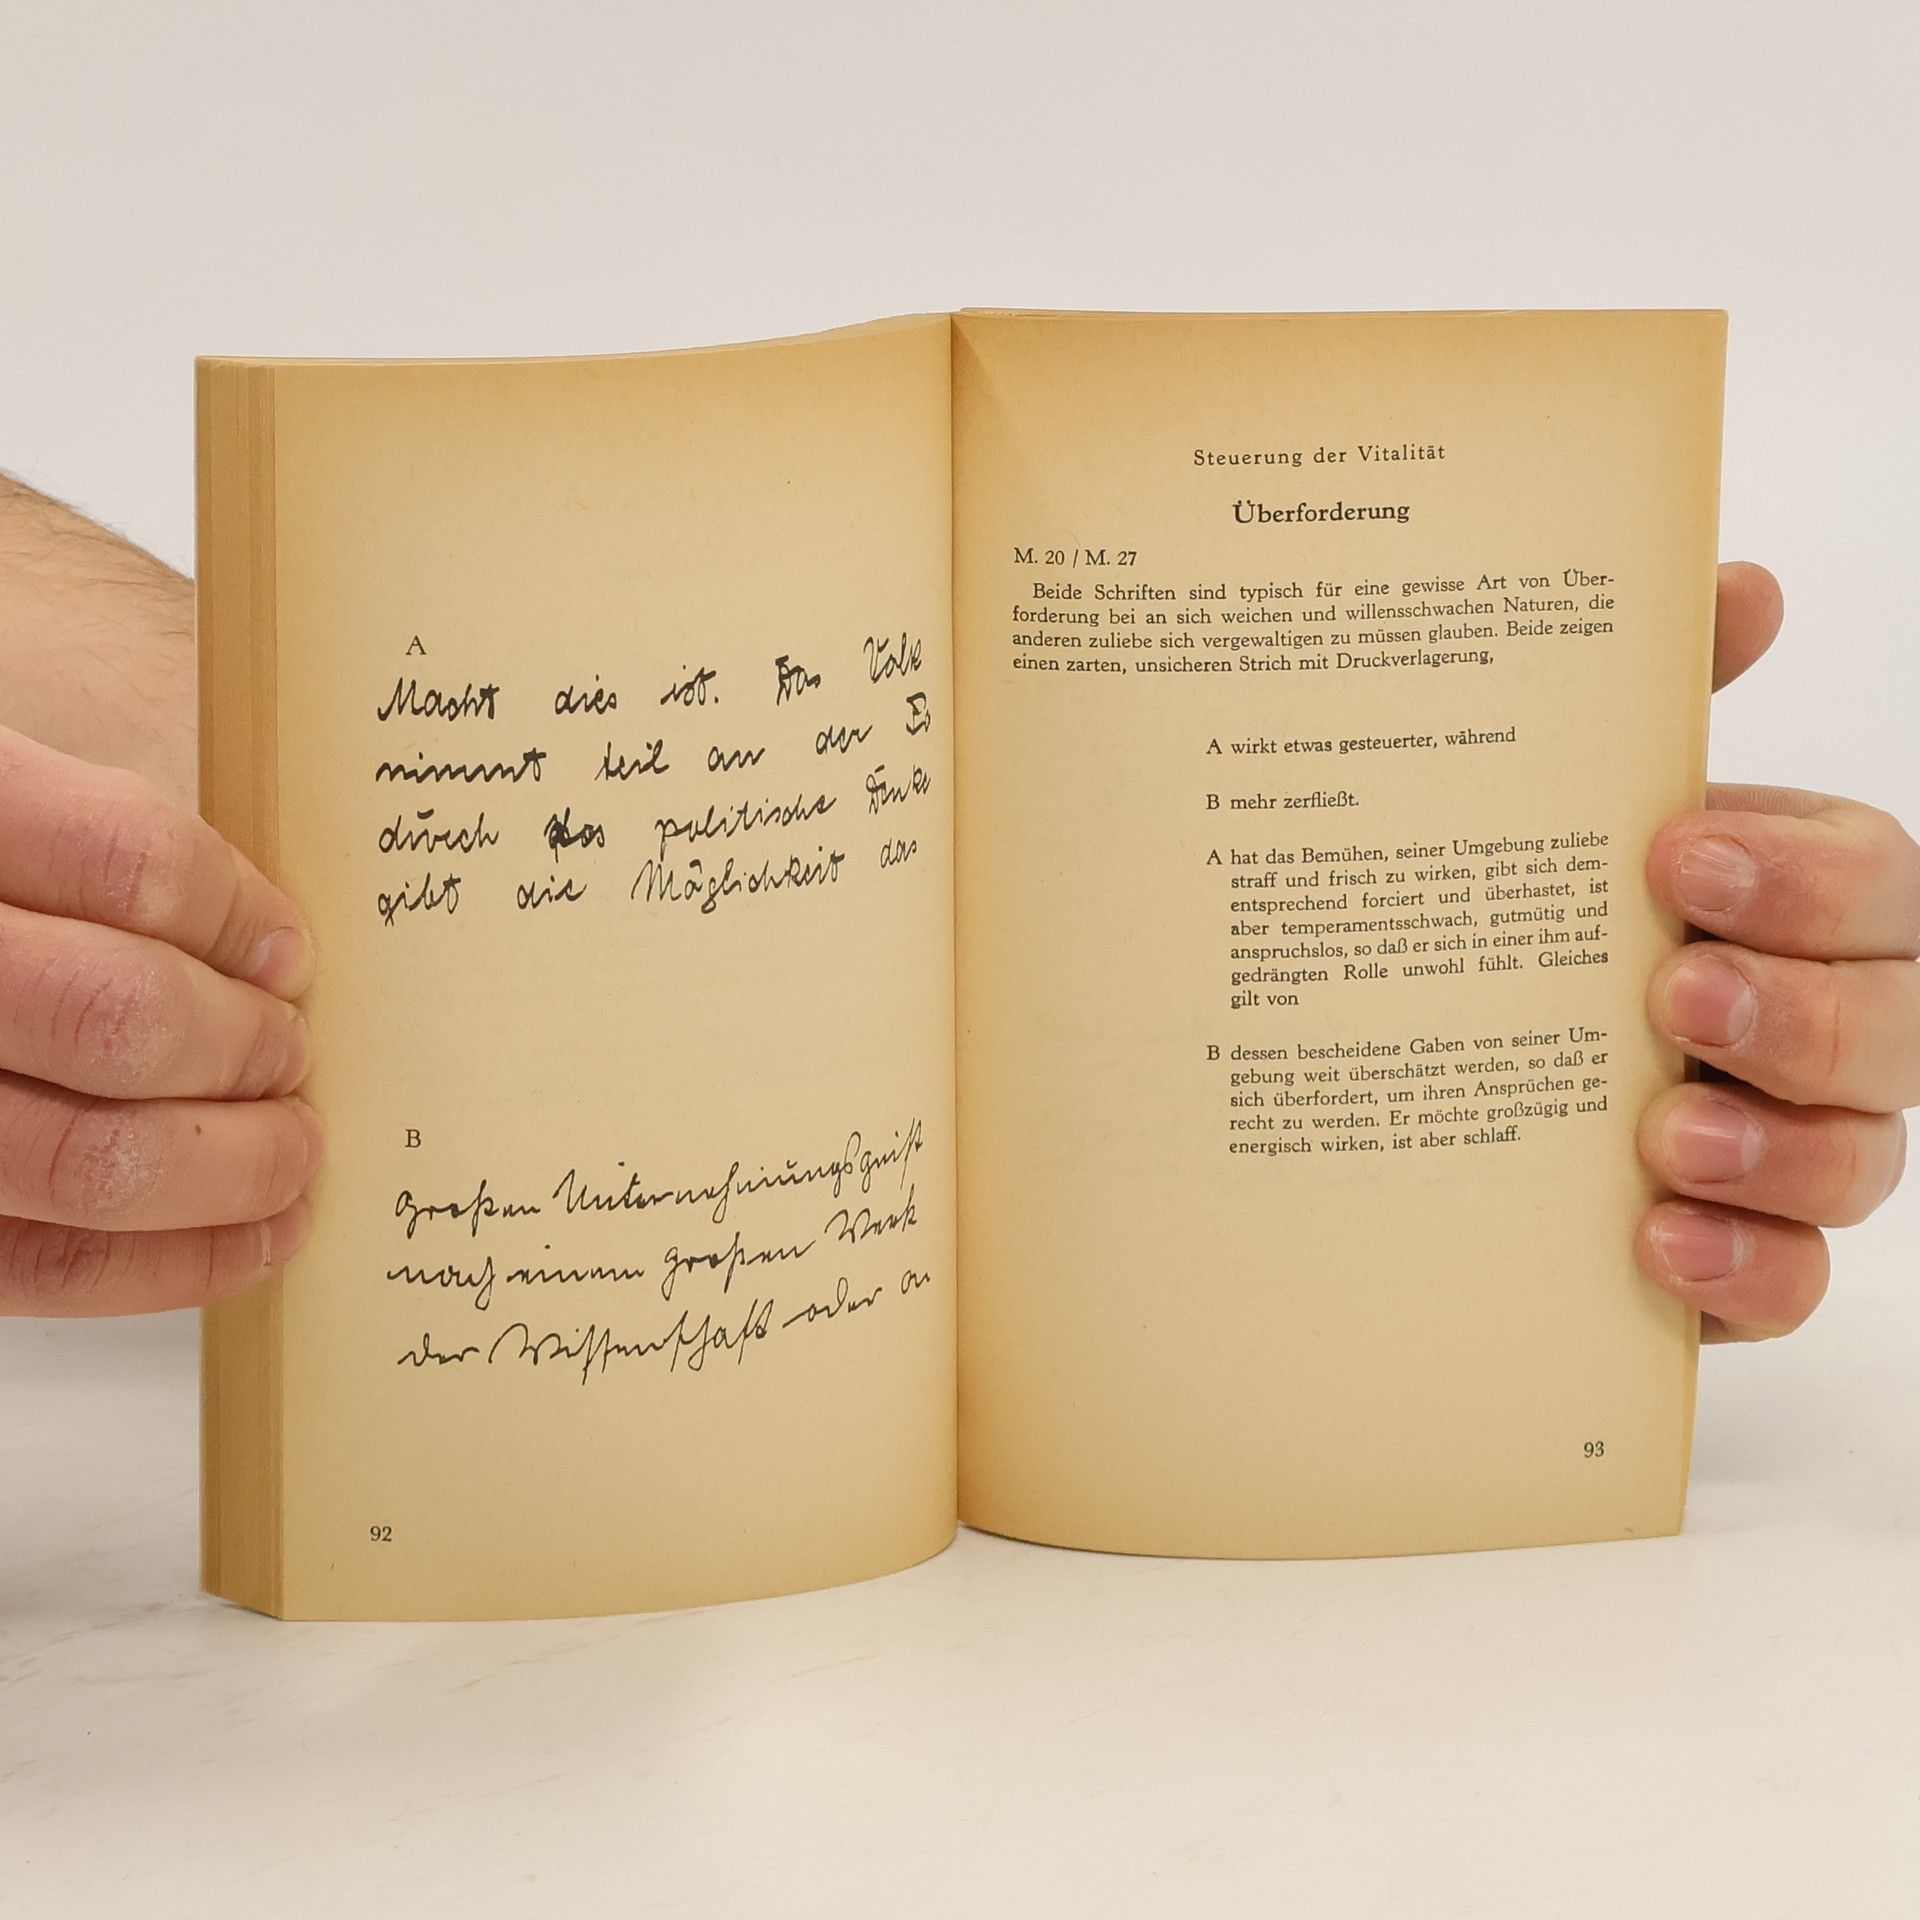 A
Macht dies ist. Das Volk
nimmt teil an der
durch das politische Denke
gibt die Möglichkeit das
B
großen Unternehmungsgeist
nach einem großen Werk
der Wissenschaft oder an
92
Steuerung der Vitalität
Überforderung
M. 20 / M. 27
Beide Schriften sind typisch für eine gewisse Art von Über-
forderung bei an sich weichen und willensschwachen Naturen, die
anderen zuliebe sich vergewaltigen zu müssen glauben. Beide zeigen
einen zarten, unsicheren Strich mit Druckverlagerung,
A wirkt etwas gesteuerter, während
B mehr zerfließt.
A hat das Bemühen, seiner Umgebung zuliebe
straff und frisch zu wirken, gibt sich dem-
entsprechend forciert und überhastet, ist
aber temperamentsschwach, gutmütig und
anspruchslos, so daß er sich in einer ihm auf-
gedrängten Rolle unwohl fühlt. Gleiches
gilt von
B dessen bescheidene Gaben von seiner Um-
gebung weit überschätzt werden, so daß er
sich überfordert, um ihren Ansprüchen ge-
recht zu werden. Er möchte großzügig und
energisch wirken, ist aber schlaff.
93